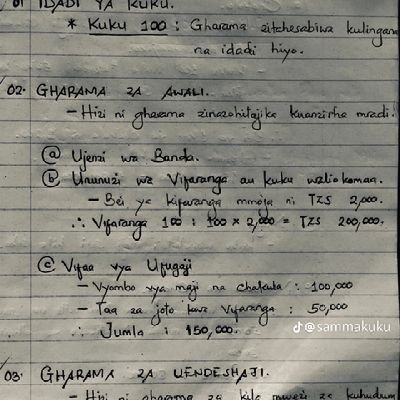 01 IDADI YA KUKU.
* KUKU 100 : Gharama zitahesabiwa kulingana
na idadi hiyo.
02. GHARAMA ZA AWALI.
- Hizi ni gharama zinazohitajika kuanzisha mradi.
(a) Ujenzi wa Banda.
(b) Ununuzi wa Vifaranga au kuku waliokomaa.
- Bei ya kifaranga mmoja ni TZS 2,000.
∴ Vifaranga 100 : 100 x 2,000 = TZS 200,000.
(c) Vifaa vya Ufugaji
- Vyombo vya maji na chakula : 100,000
- Taa za joto kwa Vifaranga : 50,000
∴ Jumla : 150,000.
@sammakuku
03. GHARAMA ZA UENDESHAJI.
- Hizi ni gharama za kila mwezi za kuhudum